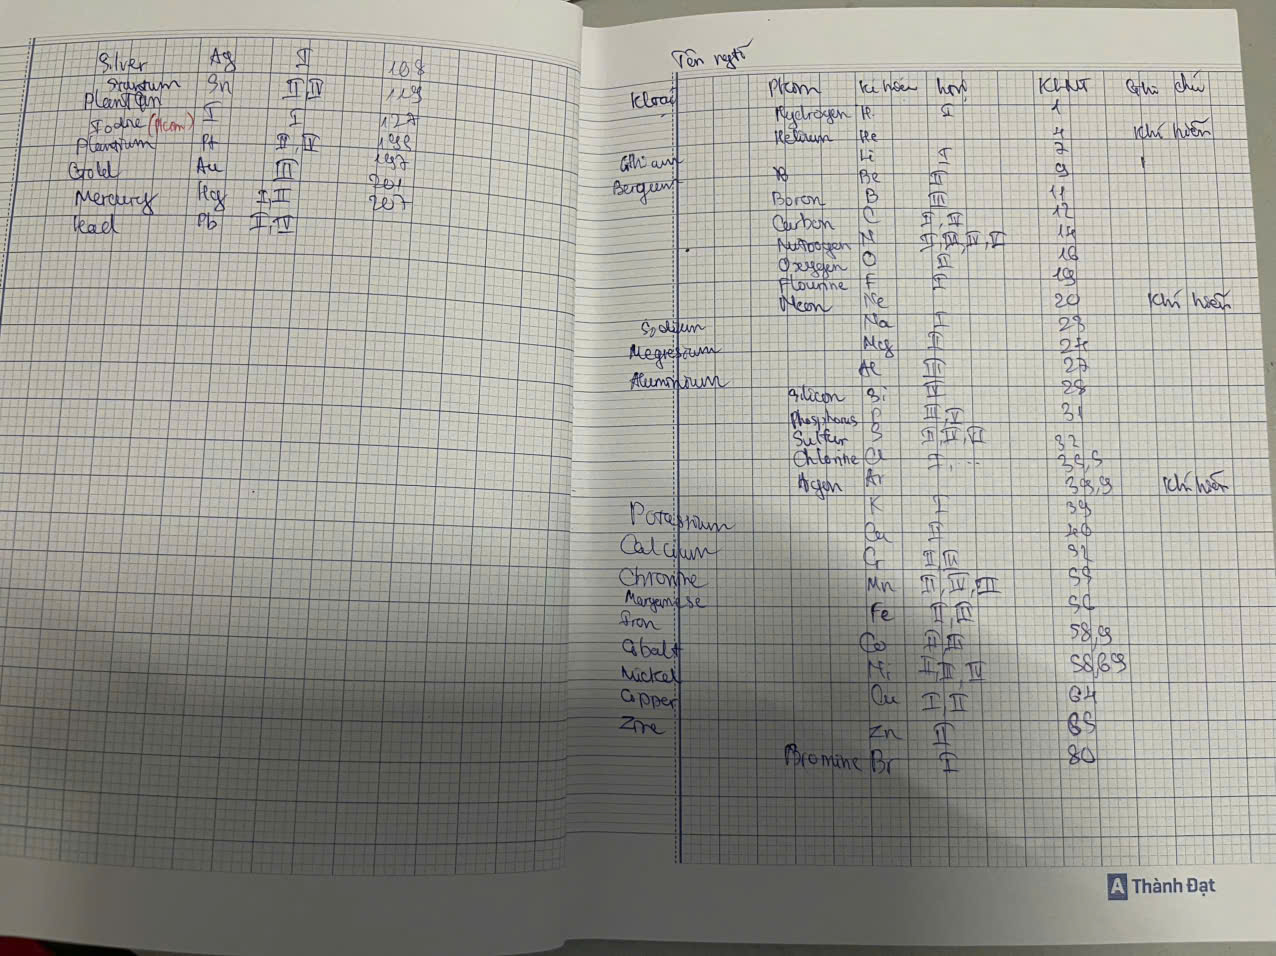 Silver Ag I 108
Sn II, IV 119
Iodine (Pkom) I I 127
Pt II, IV 195
Gold Au III 197
Mercury Hg I, II 201
Lead Pb II, IV 207
Tên ngtố
Kloai Pkom Kí hiệu htrị KLNT Ghi chú
Hydrogen H I 1
Helium He 4 Khí hiếm
Lithium Li I 7
Be II 9
Boron B III 11
Carbon C II, IV 12
Nitrogen N 14
Oxygen O II 16
Flourine F I 19
Neon Ne 20 Khí hiếm
Sodium Na I 23
Mg II 24
Aluminium Al III 27
Silicon Si IV 28
Phosphorus P III, V 31
Sulfur S II, IV, VI 32
Chlorine Cl I, ... 35,5
Agon Ar 39,9 Khí hiếm
Potassium K I 39
Calcium Ca II 40
Cr II, III 52
Mn II, IV, VII 55
Iron Fe II, III 56
Cobalt Co II, III 58,9
Nickel Ni 58,69
Copper Cu I, II 64
Zn II 65
Bromine Br I 80
A Thành Đạt